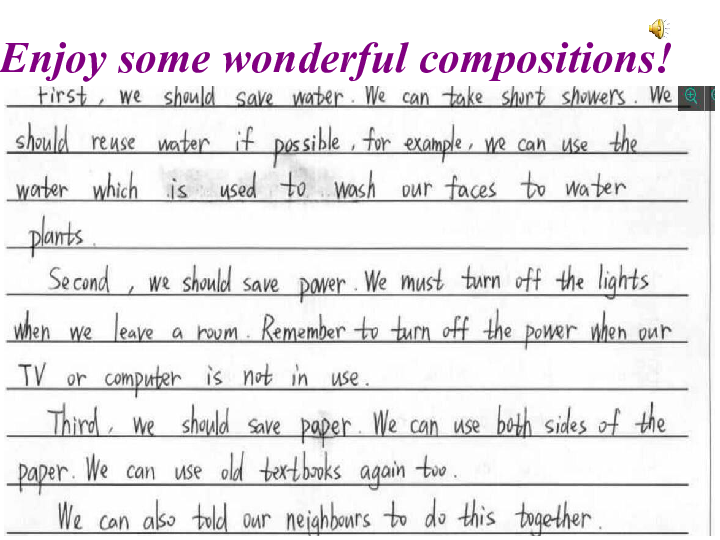 Enjoy some wonderful compositions!
First, we should save water. We can take short showers. We
should reuse water if possible, for example, we can use the
water which is used to wash our faces to water
plants.
Second, we should save power. We must turn off the lights
when we leave a room. Remember to turn off the power when our
TV or computer is not in use.
Third, we should save paper. We can use both sides of the
paper. We can use old textbooks again too.
We can also told our neighbours to do this together.